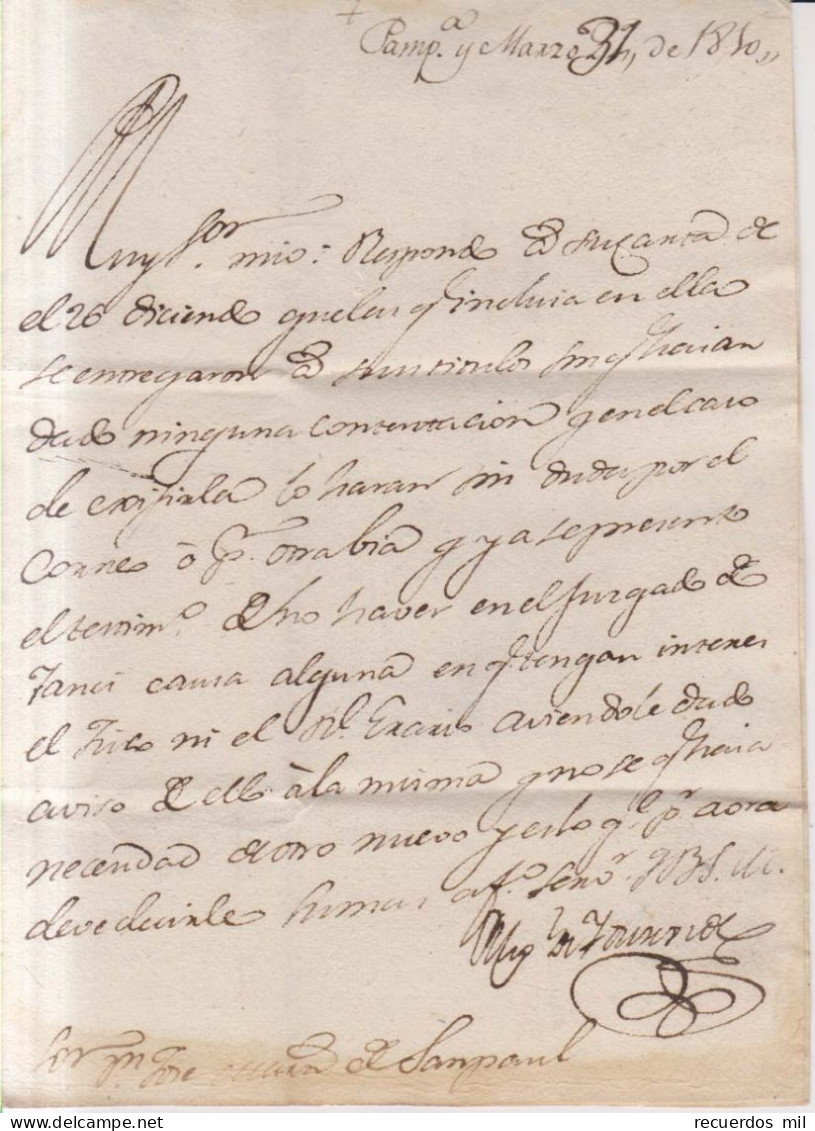 Pamp.a y Marzo 31, de 1810,,
Muy Sor. mio: Respondo a su carta de
el 26 diciendo que las q incluia en ella
se entregaron a sus titulos sin q haian
dado ninguna contestacion y en el caso
de exijirla lo haran sin duda por el
Correo ò pr. otra bia y ya se presento
el testim.o de no haver en el Juzgado de
causa alguna en q tengan interes
el Fisco ni el Rl. Erario aviendole dado
aviso de ello à la misma y no se q haia
necesidad de otro nuevo y es lo q.e p.r aora
deve decirle su mas af.o Serv.r q B S. M.
Mig.l de
Sor Dn Jose Maria de Sanpaul
recuerdos mil